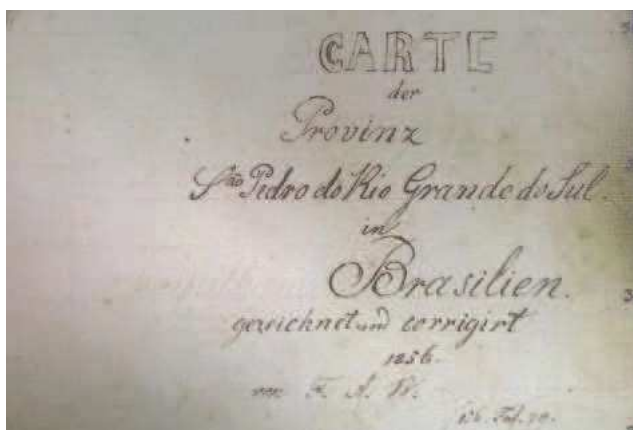 CARTE
der
Provinz
São Pedro do Rio Grande do Sul.
in
Brasilien.
gezeichnet und corrigirt
1856.
von F. A. W.